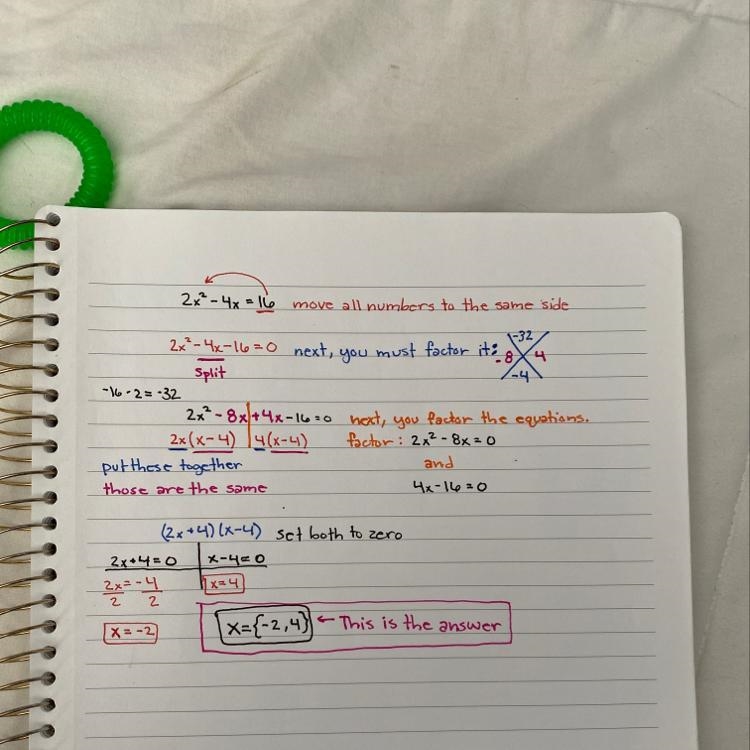 2x² - 4x = 16 move all numbers to the same side
2x² - 4x - 16 = 0 next, you must factor it: -32
-8 4
split -4
-16 · 2 = -32
2x² - 8x + 4x - 16 = 0 next, you factor the equations.
2x(x-4) 4(x-4) factor: 2x² - 8x = 0
put these together and
those are the same 4x - 16 = 0
(2x+4)(x-4) set both to zero
2x+4=0 x-4=0
2x = -4 x=4
2 2
x = -2 x={-2,4} ← This is the answer